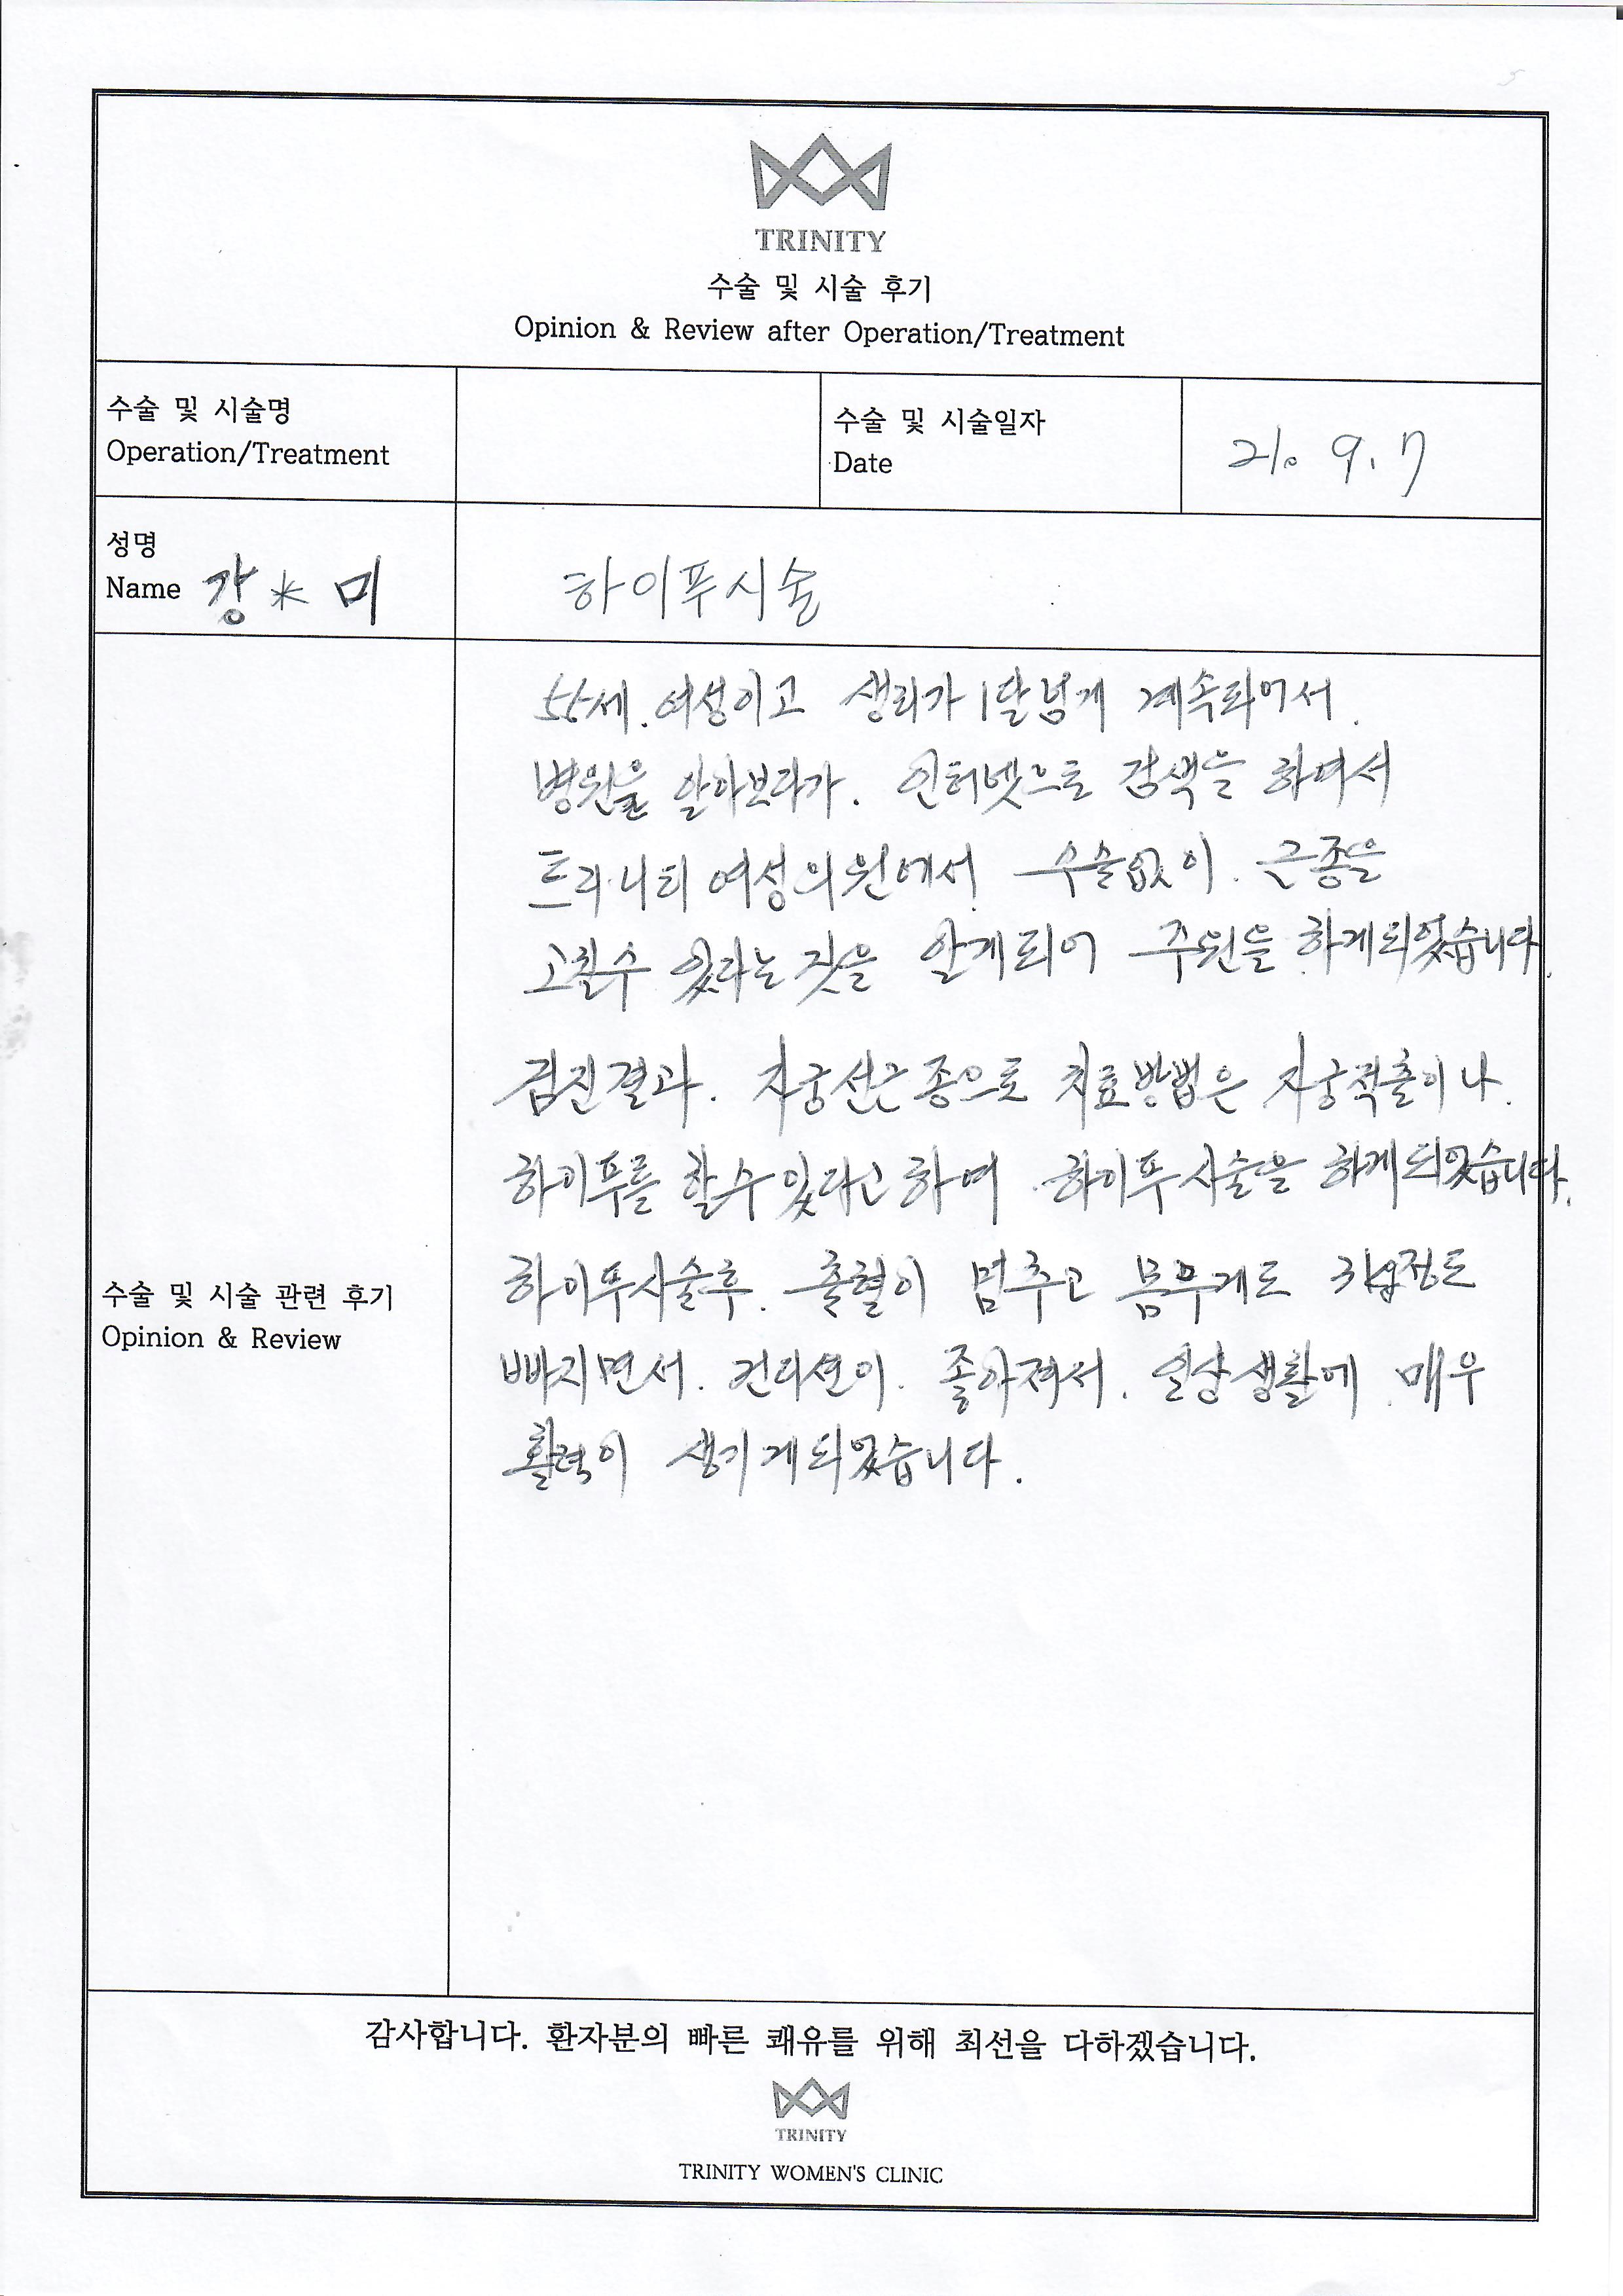 TRINITY
수술 및 시술 후기
Opinion & Review after Operation/Treatment
수술 및 시술명
Operation/Treatment
수술 및 시술일자
Date
21. 9. 7
성명
Name 강*미
하이푸시술
55세. 여성이고 생리가 1달넘게 계속되어서.
병원을 알아보다가. 인터넷으로 검색을 하여서
트리니티 여성의원에서 수술없이. 근종을
고칠수 있다는 것을 알게되어 주원을 하게되었습니다.
검진결과. 자궁선근종으로 치료방법은 자궁적출이나.
하이푸를 할수있다고하여 하이푸시술을 하게되었습니다.
하이푸시술후. 출혈이 멈추고 몸무게도 정도
빠지면서. 컨디션이. 좋아져서. 일상생활에 매우
활력이 생기게되었습니다.
수술 및 시술 관련 후기
Opinion & Review
감사합니다. 환자분의 빠른 쾌유를 위해 최선을 다하겠습니다.
TRINITY
TRINITY WOMEN'S CLINIC